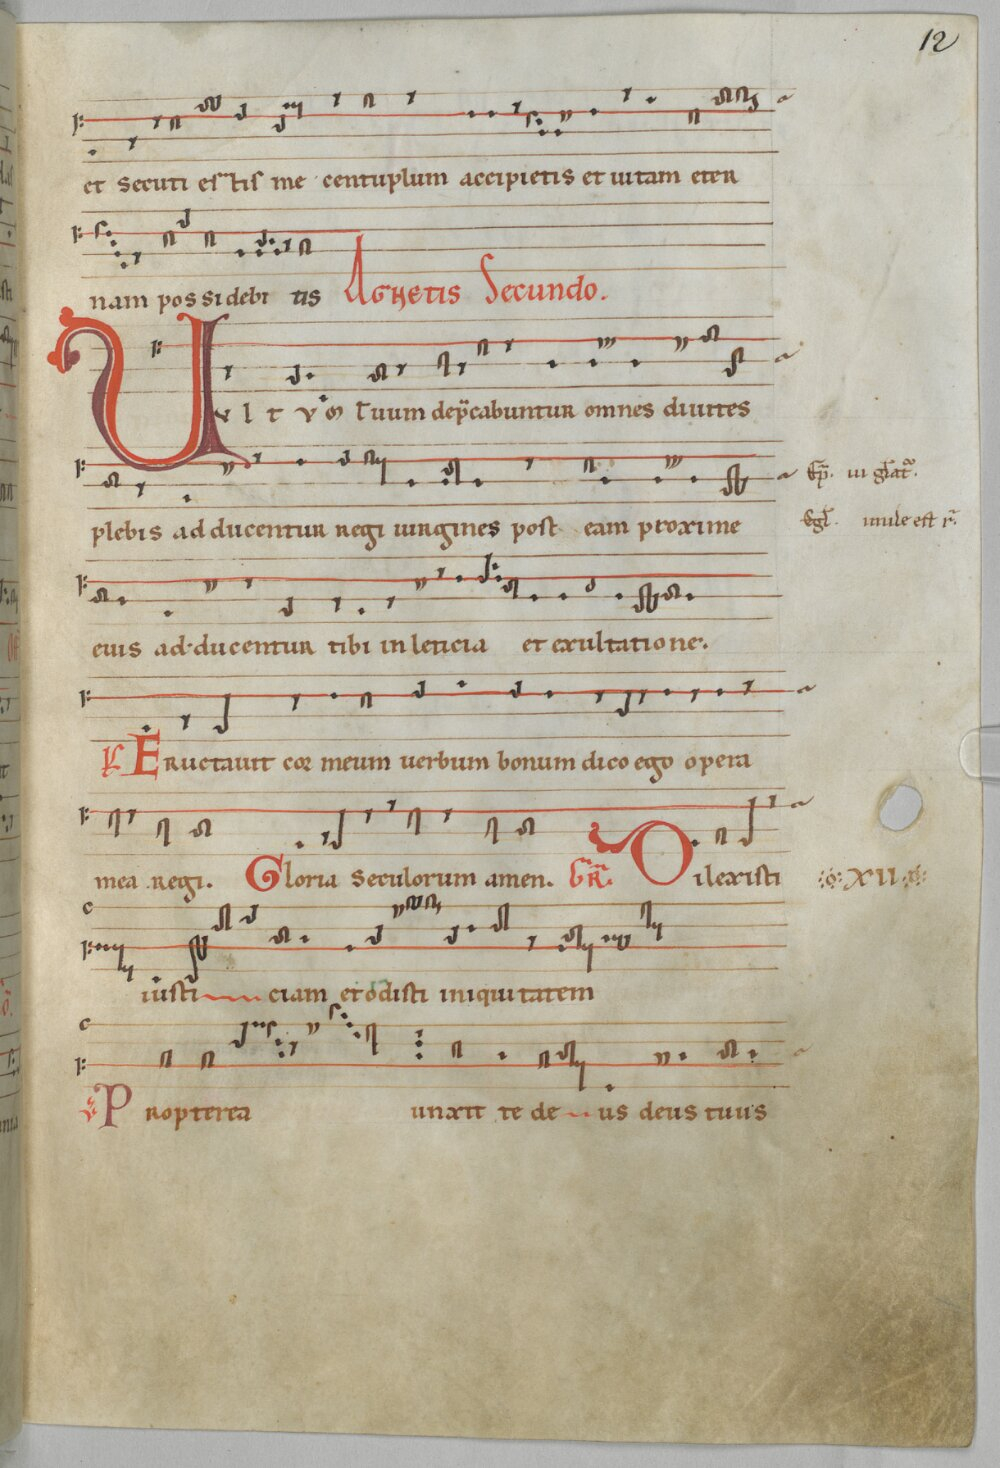 12
et secuti estis me centuplum accipietis et uitam eter
nam possidebi tis Agnetis Secundo.
Vlt tuum dep̄cabuntur omnes diuites
plebis adducentur regi uirgines post eam proxime
Ep̄. iii
est
eius adducentur tibi in leticia et exultatione.
Eructauit cor meum uerbum bonum dico ego opera
mea regi. Gloria seculorum amen. Gr̄. Dilexisti
XII
iusti ciam et odisti iniquitatem
Propterea unxit te de us deus tuus